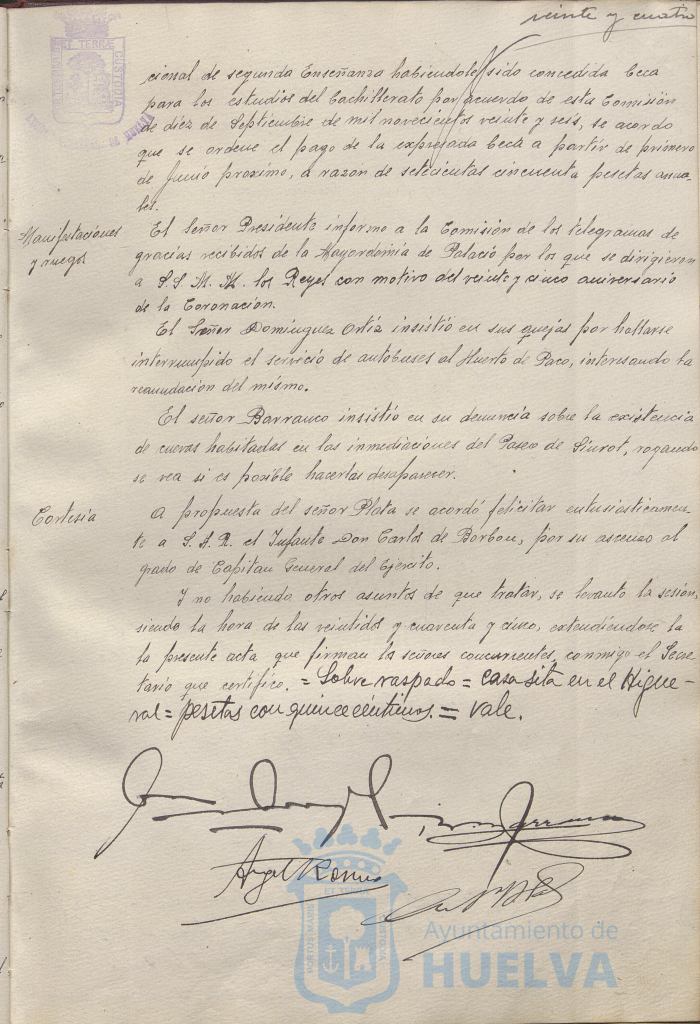 veinte y cuatro
ET TERRÆ
CUSTODIA
cional de segunda Enseñanza habiendole sido concedida beca
para los estudios del bachillerato por acuerdo de esta Comisión
de diez de Septiembre de mil novecientos veinte y seis, se acordo
que se ordene el pago de la expresada beca a partir de primero
de Junio proximo, a razon de setecientas cincuenta pesetas anua-
les.
Manifestaciones
y ruegos
El Señor Presidente informo a la Comisión de los telegramas de
gracias recibidos de la Mayordomia de Palacio por los que se dirigieron
a S.S. M.M. los Reyes con motivo del veinte y cinco aniversario
de la Coronación.
El Señor Dominguez Ortiz insistió en sus quejas por hallarse
interrumpido el servicio de autobuses al Huerto de Paco, interesando la
reanudacion del mismo.
El señor Barranco insistió en su denuncia sobre la existencia
de cuevas habitadas en las inmediaciones del Paseo de Siurot, rogando
se vea si es posible hacerlas desaparecer.
Cortesia
A propuesta del señor Plata se acordó felicitar entusiasticamen-
te a S.A.R. el Infante Don Carlos de Borbon, por su ascenso al
grado de Capitan General del Ejército.
Y no habiendo otros asuntos de que tratar, se levanto la sesión,
siendo la hora de las veintidos y cuarenta y cinco, extendiendose la
la presente acta que firman los señores concurrentes, conmigo el Secre-
tario que certifico. = Sobre raspado = casa sita en el Higue-
ral = pesetas con quince céntimos. = Vale.
Angel Romero
ET TERRÆ
PORTUS MARIS
CUSTODIA
Ayuntamiento de
HUELVA